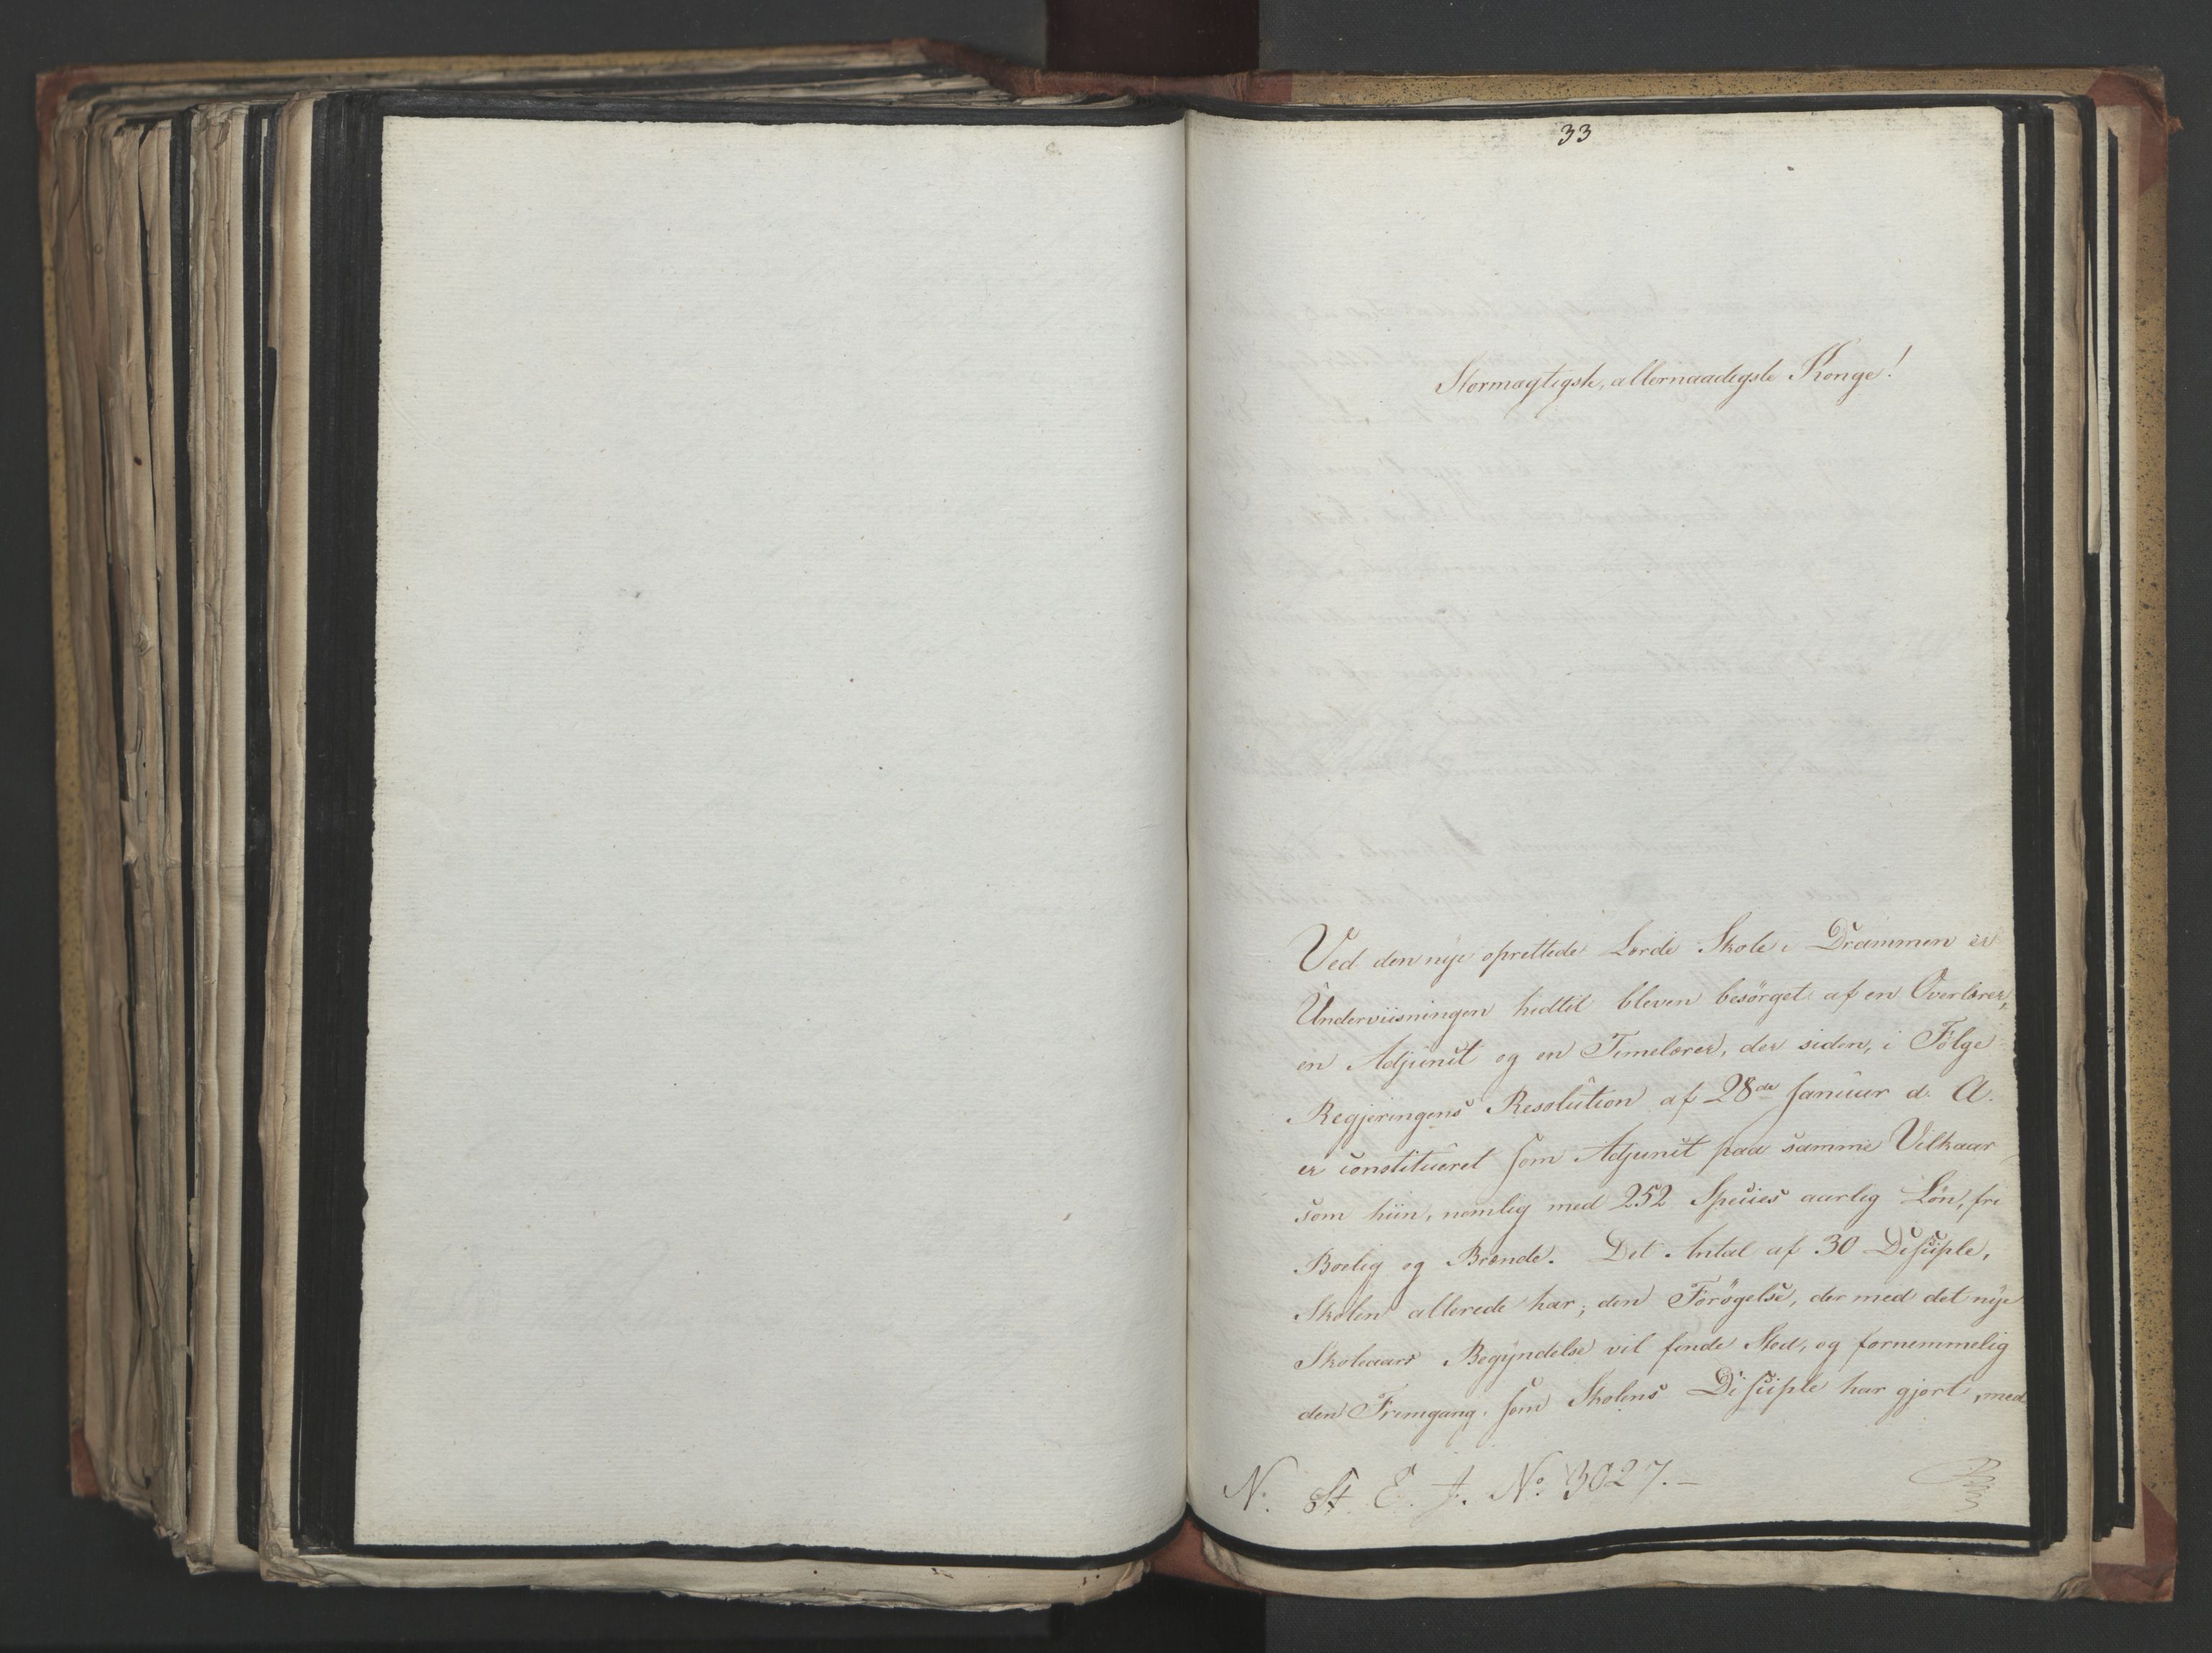 33
Stormagtigste, allernaadigste Konge!
Ved den nye oprettede Lærde Skole i Drammen er
Underviisningen hidtil bleven besörget af en Overlærer,
en Adjunct og en Timelærer, der siden, i Fölge
Regjeringens Resolution af 28de Januar d. A.
er constitueret som Adjunct paa samme Vilkaar
som hiin, nemlig med 252 Species aarlig Lön, fri
Bolig og Brænde. Det Antal af 30 Disciple,
Skolen allerede har; den Forögelse, der med det nye
Skoleaars Begyndelse vil finde Sted, og fornemmelig
den Fremgang, som Skolens Disciple har gjort, med
N. St. E. J. No 3027.-